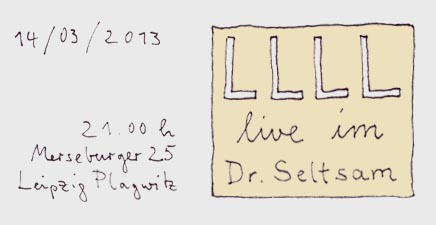 14/03/2013
21.00 h
Merseburger 25
Leipzig Plagwitz
LLLL
live im
Dr. Seltsam